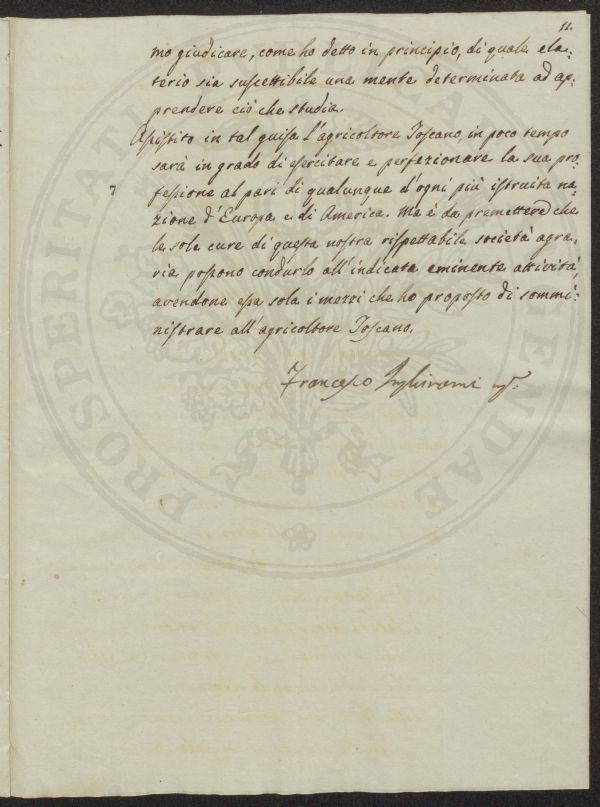 11.
mo giudicare, come ho detto in principio, di quale ela:
terio sia suscettibile una mente determinata ad ap:
prendere ciò che studia.
Assistito in tal guisa l'agricoltore Toscano, in poco tempo
sarà in grado di esercitare e perfezionare la sua pro
7 fessione al pari di qualunque d'ogni più istruita na:
zione d'Europa e di America. Ma è da premettere che
le sole cure di questa nostra rispettabile società agra:
ria possono condurlo all'indicata eminente attività,
avendone essa sola i mezzi che ho proposto di sommi:
nistrare all'agricoltore Toscano.
Francesco Inghirami
PROSPERITATI AUGENDAE